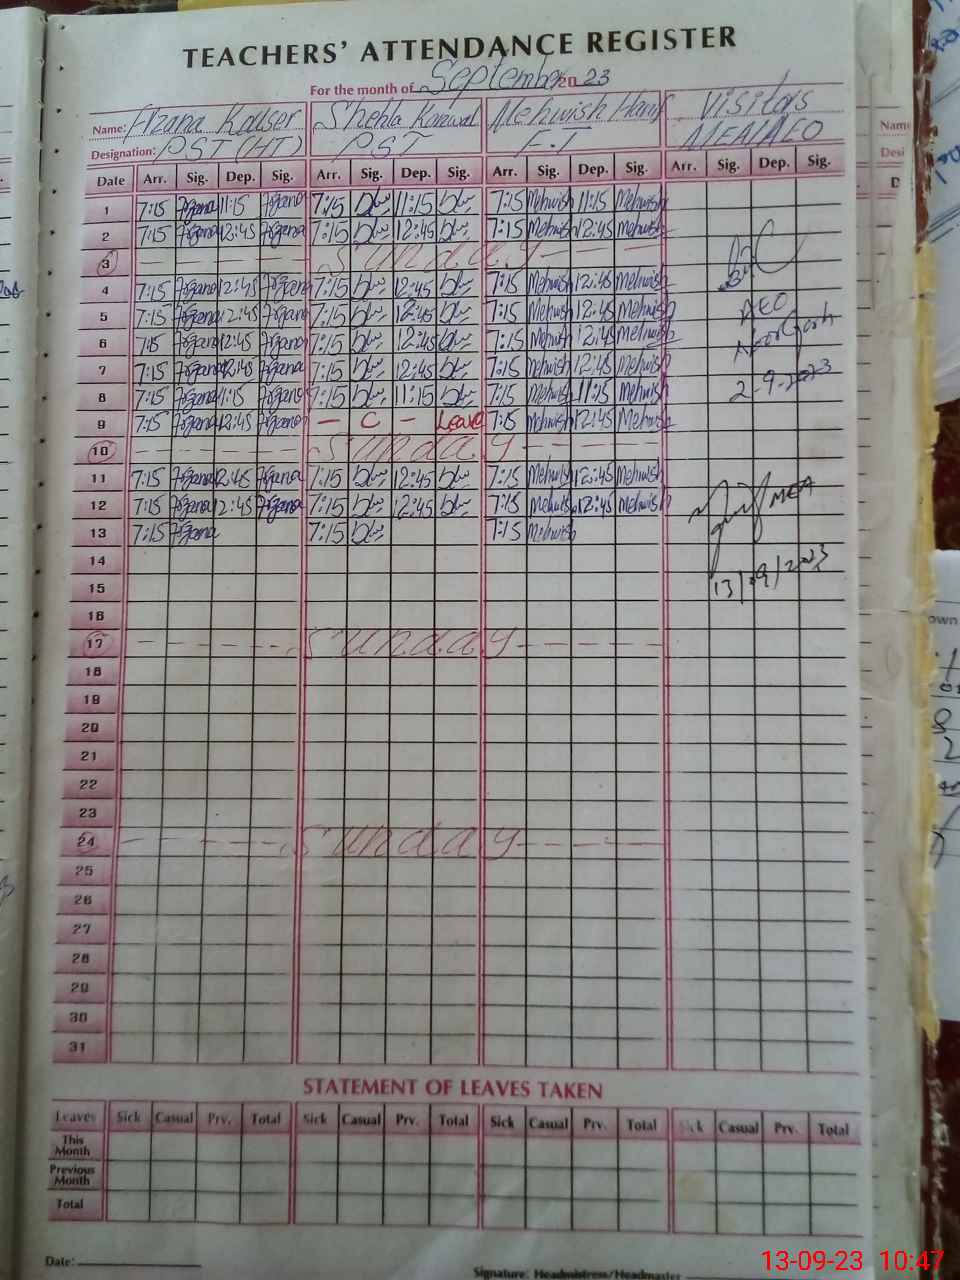 TEACHERS' ATTENDANCE REGISTER
For the month of September 2023
Name: Azana Kauser Shehla Kanwal Mehwish Hanif Visitors
Designation: PST (HT) PST E.T MEA/AEO
Date Arr. Sig. Dep. Sig. Arr. Sig. Dep. Sig. Arr. Sig. Dep. Sig. Arr. Sig. Dep. Sig.
1 7:15 11:15 7:15 11:15 7:15 Mehwish 11:15 Mehwish
2 7:15 12:45 7:15 12:45 7:15 Mehwish 12:45 Mehwish
3 Sunday
4 7:15 12:45 7:15 12:45 7:15 Mehwish 12:45 Mehwish
5 7:15 12:45 7:15 12:45 7:15 Mehwish 12:45 Mehwish
AEO
6 7:15 12:45 7:15 12:45 7:15 Mehwish 12:45 Mehwish
7 7:15 12:45 7:15 12:45 7:15 Mehwish 12:45 Mehwish
8 7:15 11:15 7:15 11:15 7:15 Mehwish 11:15 Mehwish
2-9-2023
9 7:15 12:45 — C — Leave 7:15 Mehwish 12:45 Mehwish
10 Sunday
11 7:15 12:45 7:15 12:45 7:15 Mehwish 12:45 Mehwish
12 7:15 12:45 7:15 12:45 7:15 Mehwish 12:45 Mehwish
MEA
13 7:15 7:15 7:15 Mehwish
14
15
13/09/2023
16
17 Sunday
18
19
20
21
22
23
24 Sunday
25
26
27
28
29
30
31
STATEMENT OF LEAVES TAKEN
Leaves Sick Casual Prv. Total Sick Casual Prv. Total Sick Casual Prv. Total Sick Casual Prv. Total
This Month
Previous Month
Total
Date:
Signature: Headmistress/Headmaster
13-09-23 10:47